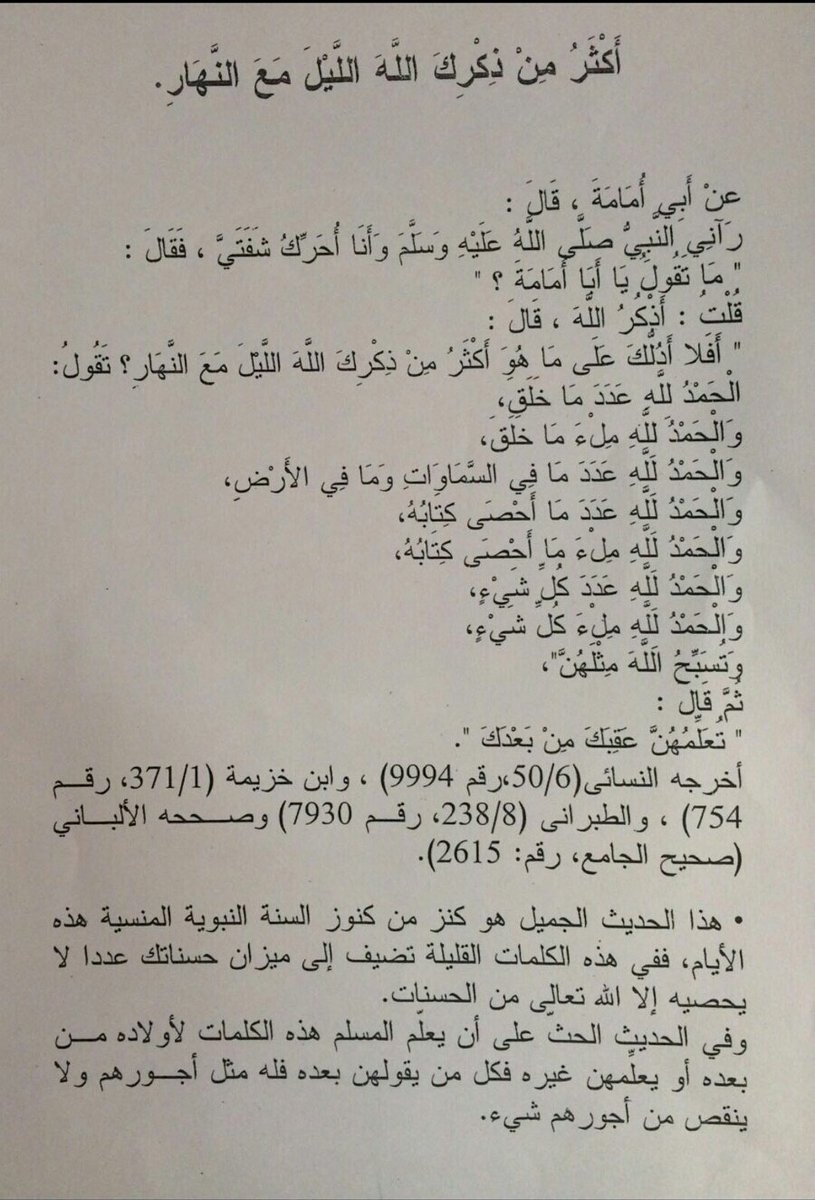 أَكْثَرُ مِنْ ذِكْرِكَ اللَّهَ اللَّيْلَ مَعَ النَّهَارِ.
عنْ أَبِي أُمَامَةَ ، قَالَ :
رَآنِي النَّبِيُّ صَلَّى اللَّهُ عَلَيْهِ وَسَلَّمَ وَأَنَا أُحَرِّكُ شَفَتَيَّ ، فَقَالَ :
" مَا تَقُولُ يَا أَبَا أُمَامَةَ ؟ "
قُلْتُ : أَذْكُرُ اللَّهَ ، قَالَ :
" أَفَلا أَدُلُّكَ عَلَى مَا هُوَ أَكْثَرُ مِنْ ذِكْرِكَ اللَّهَ اللَّيْلَ مَعَ النَّهَارِ؟ تَقُولُ:
الْحَمْدُ لِلَّهِ عَدَدَ مَا خَلَقَ،
وَالْحَمْدُ لِلَّهِ مِلْءَ مَا خَلَقَ،
وَالْحَمْدُ لِلَّهِ عَدَدَ مَا فِي السَّمَاوَاتِ وَمَا فِي الأَرْضِ،
وَالْحَمْدُ لِلَّهِ عَدَدَ مَا أَحْصَى كِتَابُهُ،
وَالْحَمْدُ لِلَّهِ مِلْءَ مَا أَحْصَى كِتَابُهُ،
وَالْحَمْدُ لِلَّهِ عَدَدَ كُلِّ شَيْءٍ،
وَالْحَمْدُ لِلَّهِ مِلْءَ كُلِّ شَيْءٍ،
وَتُسَبِّحُ اللَّهَ مِثْلَهُنَّ"،
ثُمَّ قَالَ :
" تُعَلِّمُهُنَّ عَقِبَكَ مِنْ بَعْدَكَ ".
أخرجه النسائى(50/6،رقم 9994) ، وابن خزيمة (371/1، رقم
754) ، والطبرانى (238/8، رقم 7930) وصححه الألباني
(صحيح الجامع، رقم: 2615).
• هذا الحديث الجميل هو كنز من كنوز السنة النبوية المنسية هذه
الأيام، ففي هذه الكلمات القليلة تضيف إلى ميزان حسناتك عددا لا
يحصيه إلا الله تعالى من الحسنات.
وفي الحديث الحثّ على أن يعلّم المسلم هذه الكلمات لأولاده من
بعده أو يعلّمهن غيره فكل من يقولهن بعده فله مثل أجورهم ولا
ينقص من أجورهم شيء.